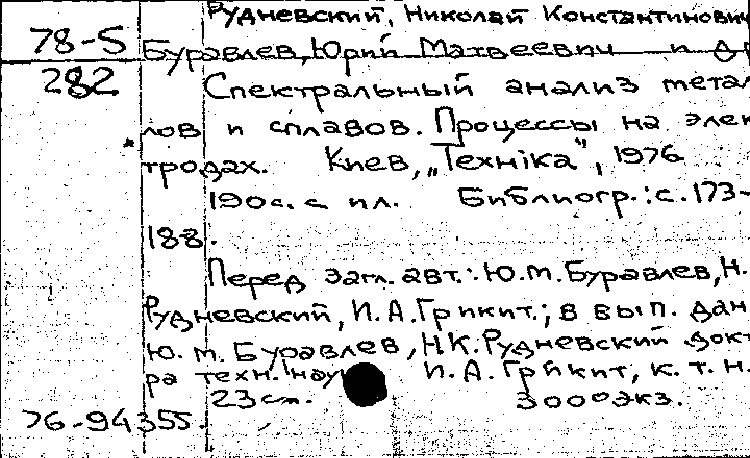 Рудневский, Николай Константинович
78-5 Буравлев, Юрий Матвеевич и др
282 Спектральный анализ метал
лов и сплавов. Процессы на элек
тродах. Киев, „Технiка", 1976
190 с. с ил. Библиогр.: с. 173-
188.
Перед загл. авт.: Ю.М. Буравлев, Н.
Рудневский, И.А. Грикит.; в вып. дан
Ю.М. Буравлев, Н.К. Рудневский докт
ра техн. наук И.А. Грикит, к. т. н.
23 см. 3000 экз.
76-94355.